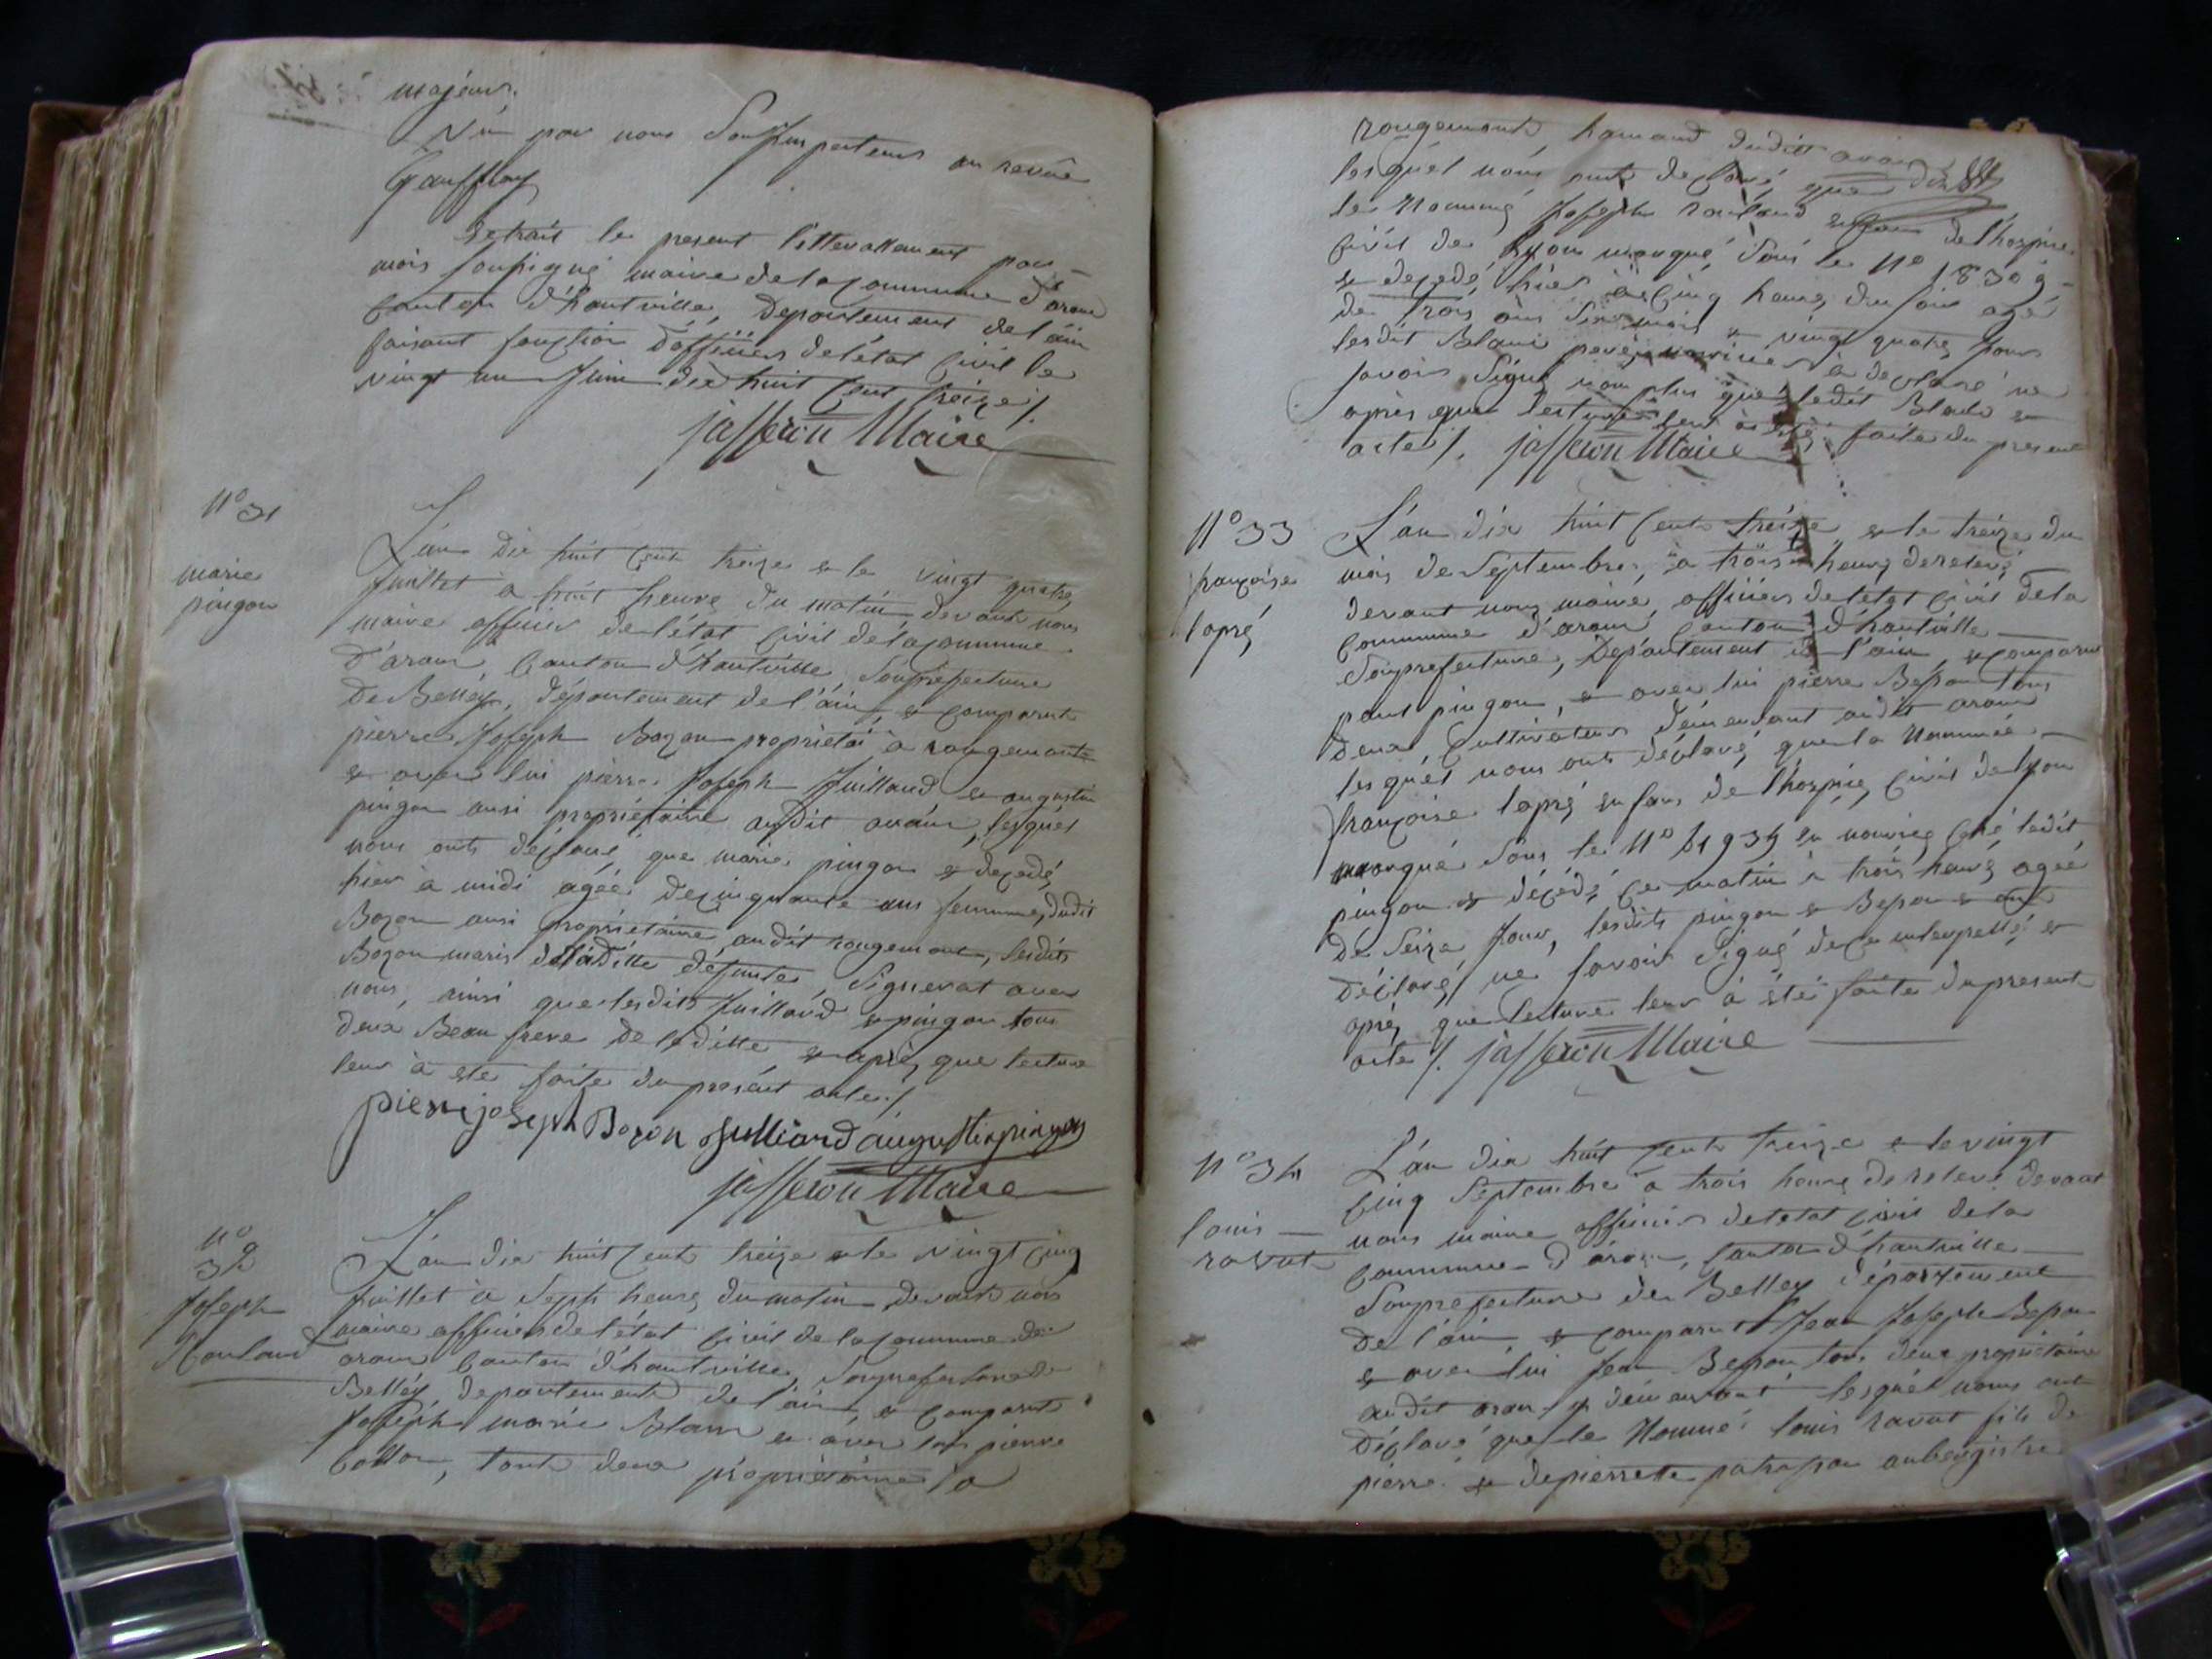 majeur.
Vu par nous Sousinspecteur au revue
Gauffroy
Extrait le present litterallement par
mois soussigné maire de la commune d'aran
canton d'hautville, Departement de l'ain
faisant fonction d'officier de l'état civil le
vingt un Juin dix huit cent treize /.
jasseron Maire
N° 31
marie
pingon
L'an dix huit cent treize & le vingt quatre
Juillet à huit heure du matin devant nous
maire officier de l'état civil de la commune
d'aran, canton d'hautville, Souprefecture
De Belley, département de l'ain, & comparut
pierre Joseph Bozon propriétai à rougemont
& avec lui pierre Joseph Juilland & augustin
pingon ausi propriétaire audit aran, lesquel
nous onts déclaré que marie pingon & decedé
hier à midi agée de cinquante ans femme dudit
Bozon ausi propriétaire audit rougemont, lesdits
Bozon maris deladitte défunte, Signerat avec
nous, ainsi que lesdits Juilland & pingon tous
deux Beau frere de laditte & après que lecture
leur à été faite du present acte /.
pierre joseph Bozon Julliand augustin pingon
jasseron Maire
N°
32
Joseph
Rouland
L'an dix huit cent treize & le vingt cinq
Juillet à Septh heure du matin devant nous
maire officier de l'état civil de la commune de
aran canton d'hautville, Souprefecture de
Belley, departement de l'ain, & comparut
Joseph marie Blanc & avec lui pierre
tout deux propriétaire à
rougemont, hamaud dudit aran
lesquel nous onts declaré que
le Nommé Joseph rouland enfan de l'hospice
civil de lyon marqué Sous le N° 18309
& decedé hier à cinq heure du soir agé
de trois ans Six mois & vingt quatre Jours
lesdit Blanc pere nourice à declaré ne
savoir Signé non plus que ledit &
après que lecture leur à été faite du present
acte /. jasseron Maire
N° 33
françoise
lapré
L'an dix huit cent treize & le treize du
mois de Septembre, à trois heure de relevé
devant nous maire, officier de letat civil de la
commune d'aran canton d'hautville
Souprefecture, Departement de l'ain, & comparut
paul pingon, & avec lui pierre Besson tous
deux Cultivateur demeurant audit aran
lesquel nous onts déclaré que la Nommée
françoise lapré enfans de l'hospice civil de lyon
marqué Sous le N° 81934 en nourice ché ledit
pingon & décédé ce matin à trois heure agée
de Seize Jour, lesdits pingon & Besson & ont
déclaré ne savoir Signé de ce interpellé &
après que lecture leur à été faite du present
acte /. jasseron Maire
N° 34
louis
ravat
L'an dix huit cent treize & le vingt
cinq Septembre à trois heure de relevé devant
nous maire officier de l'etat civil de la
commune d'aran, canton d'hautville
Souprefecture de Belley département
de l'ain & comparut Jean Joseph Besson
& avec lui Jean Besson tous deux propriétaire
audit aran y demeurant lesquel nous ont
déclaré que le Nommé louis ravat fils de
pierre & de pierrette aubergiste